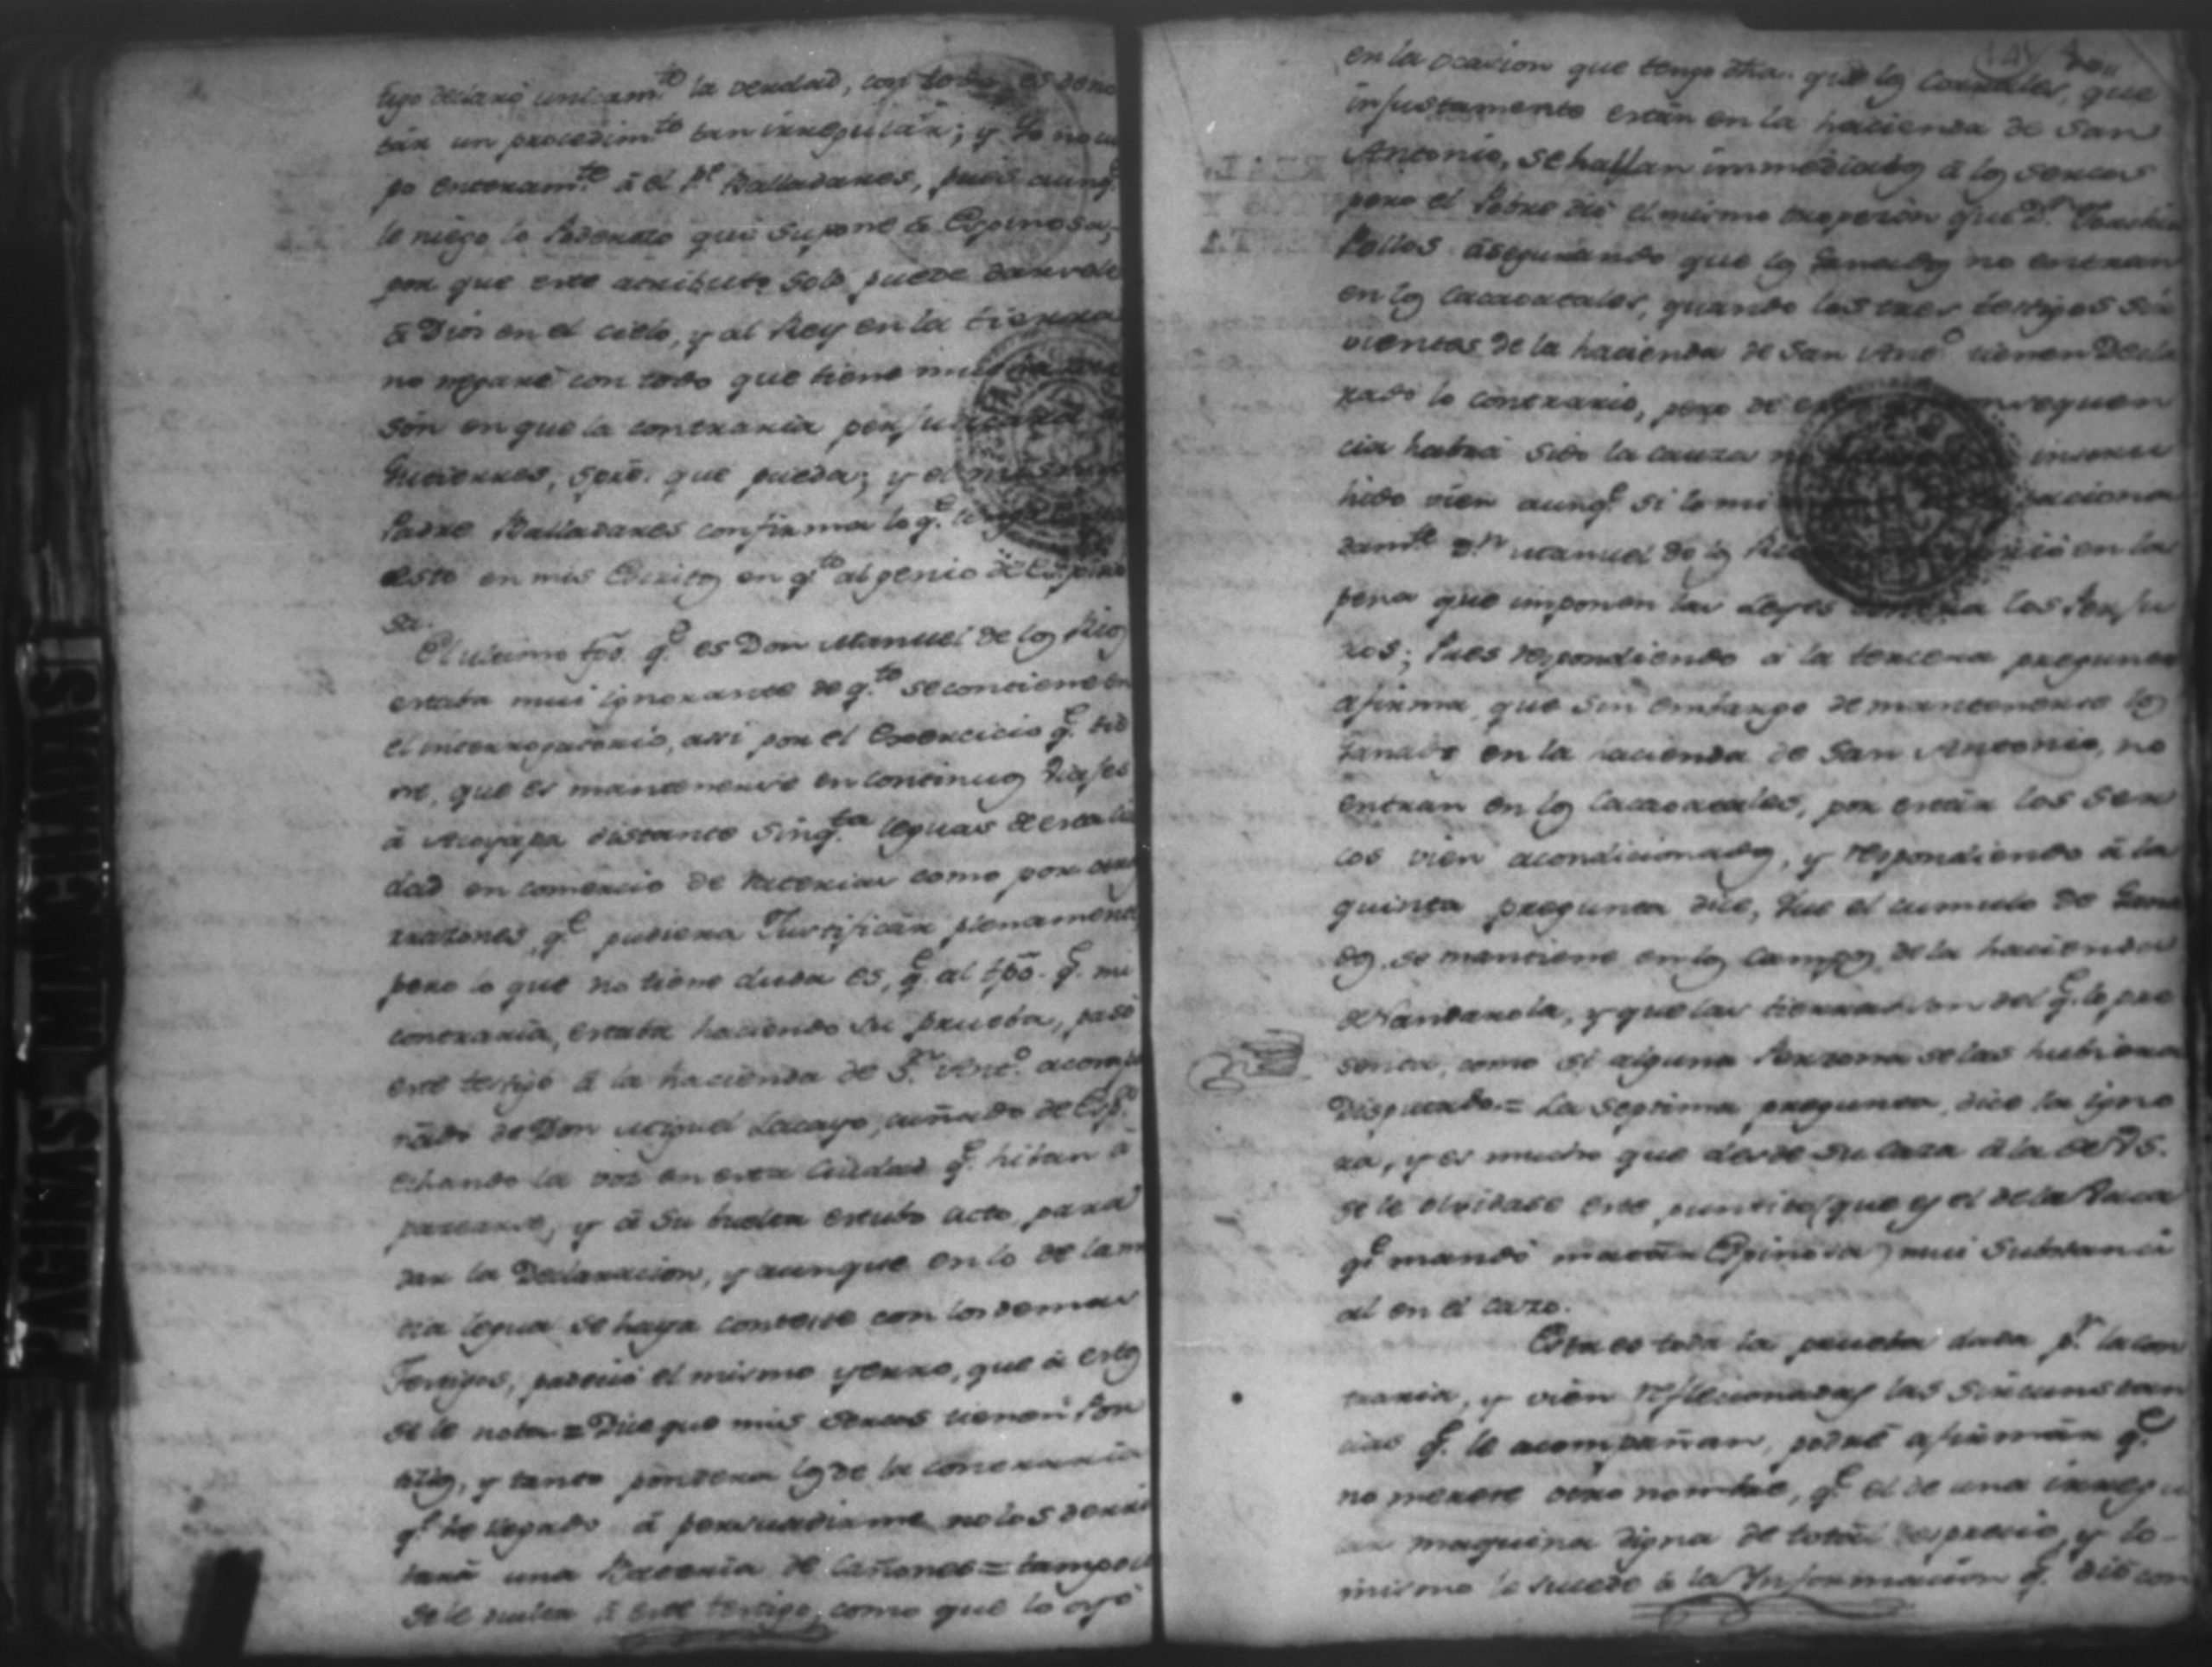 tigo declaró unicam.te la verdad, con todo, es deno
tár un procedim.to tan irregulár; y Yo no cul
po enteram.te â el P.e Balladares, pues aunq.e
le niego lo Poderozo que supone â Espinosa,
por que este atributo solo puede darsele
â Dios en el cielo, y al Rey en la tierra
no negaré con todo que tiene mucha ra
són en que la contraria perjudicará a
Gutierres, spre. que pueda; y el mismo
Padre Balladares confirma lo q.e
esto en mis Escritos en q.to al genio de Espino
sa.
El ultimo tgo. q.e es Don Manuel de los Rios
estaba mui ignorante de q.to se contiene en
el interrogatorio, assi por el Exercicio q.e tie
ne, que es mantenerse en continuos viajes
â Acoyapa distante sinq.ta leguas de esta ciu
dad en comercio de raterias como por otras
razones q.e pudiera Justificár plenamente
pero lo que no tiene duda es, q.e al tpo. q.e mi
contraria, estaba haciendo su prueba, pasó
este testigo â la hacienda de S.n Ant.o acompa
ñado de Don Miguel Lacayo, cuñado de Esp.a
echando la voz en esta Ciudad q.e hiban â
pasearse, y â su buelta estubo acto para
dar la Declaracion, y aunque en lo de la me
dia legua se haya conteste con los demas
Testigos, padeció el mismo yerro, que â estos
se le nota = Dice que mis sercos tienen Por
tillos, y tanto pondera los de la contraria
q.e he llegado â persuadirme no los derri
bará una Bateria de cañones = tampoco
se le oculta â este testigo, como que lo oyó
en la ocacion que tengo dha. que los Corrales, que
injustamente están en la hacienda de San
Antonio, se hallan immediatos â los sercos
pero el Pobre dió el mismo tropezón que D.n Joachin
Pellos asegurando que los Ganados no entran
en los cacaoatales, quando los tres testigos sir
vientes de la hacienda de San Ant.o tienen Decla
rado lo contrario, pero de esta inconsequen
cia habrá sido la causa no instru
hido vien aunq.e si lo mi paciona
dam.te D.n Manuel de los Rios en la
pena que imponen las Leyes contra los Perju
ros; Pues respondiendo â la tercera pregunta
afirma, que sin embargo de mantenerse los
Ganados en la hacienda de San Antonio, no
entran en los Cacaoatales, por estár los ser
cos vien acondicionados, y respondiendo â la
quinta pregunta dice, Que el cumulo de Gana
dos, se mantiene en los campos de la hacienda
de Nandarola, y que las tierras son del q.e lo pre
senta, como si alguna Perzona se las hubiera
Disputado. = La septima pregunta, dice la igno
ra, y es mucho que desde su caza â la de VS.
se le olvidase este puntito (que es el de la Vaca
q.e mandó matár Espinosa) mui substanci
al en el cazo.
Esta es toda la prueba dada p.r la con
traria, y vien reflecionadas las sircunstan
cias q.e le acompañan, podré afirmár q.e
no merece otro nombre, q.e el de una irregu
lar maquina digna de totál desprecio, y lo
mismo le sucede â la Informacion q.e dió con
PAGINAS MANCHADAS